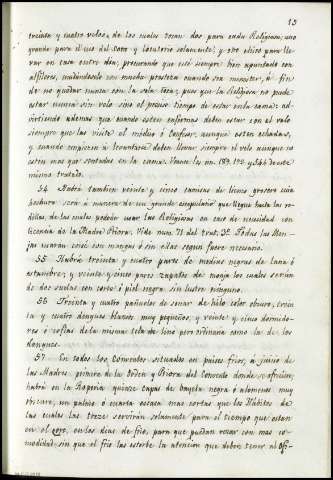 13
treinta y cuatro velos, de los cuales tocan dos para cada Religiosa; uno
grande para el uso del coro y Locutorio solamente, y otro chico para lle-
var en casa contra dia; procurando que esté siempre bien apuntado con
alfileres, mudándosele con mucha presteza cuando sea menester, á fin
de no quedar nunca con la sola toca; pues que la Religiosa no puede
estar nunca sin velo sino el preciso tiempo de estar en la cama: ad-
virtiendo ademas que cuando esten enfermas deben estar con el velo
siempre que las visite el médico ó Confesor, aunque esten echadas,
y cuando empiecen á levantarse deben llevar siempre el velo aunque no
esten mas que sentadas en la cama. Veanse los nn. 189, 190 y 544 de este
mismo tratado.
54 Habrá tambien veinte y cinco camisas de lienzo grosero cuya
hechura será á manera de un grande que llegue hasta las ro-
dillas, de las cuales podrán usar las Religiosas en caso de necesidad con
licencia de la Madre Priora. Vide num. 71 del trat. 3º. Todas las Mon-
jas usarán con mangas ó sin ellas segun fuere necesario.
55 Habrá treinta y cuatro pares de medias negras de lana ó
estambre, y veinte y cinco pares zapatos de monja los cuales serán
de dos suelas con corte ó piel negra sin lustre ninguno.
56 Treinta y cuatro pañuelos de sonar de hilo color obscuro, trein-
ta y cuatro dengues blancos muy pequeños, y veinte y cinco dormido-
res ó cofias de la misma tela de lino ordinaria como la de los
dengues.
57 En todos los Conventos situados en paises frios, á juicio de
las Madres primera de la Orden y Priora del Convento donde,
habrá en la Roperia quince capas de bayeta negra ó atomente muy
obscuro, un palmo ó cuarta escasa mas cortas que los Hábitos de
las cuales las trece servirán solamente para el tiempo que estan
en el coro, en los dias de frio, para que puedan rezar con mas co-
modidad sin que el frio les estorbe la atencion que deben tener al Ofi-